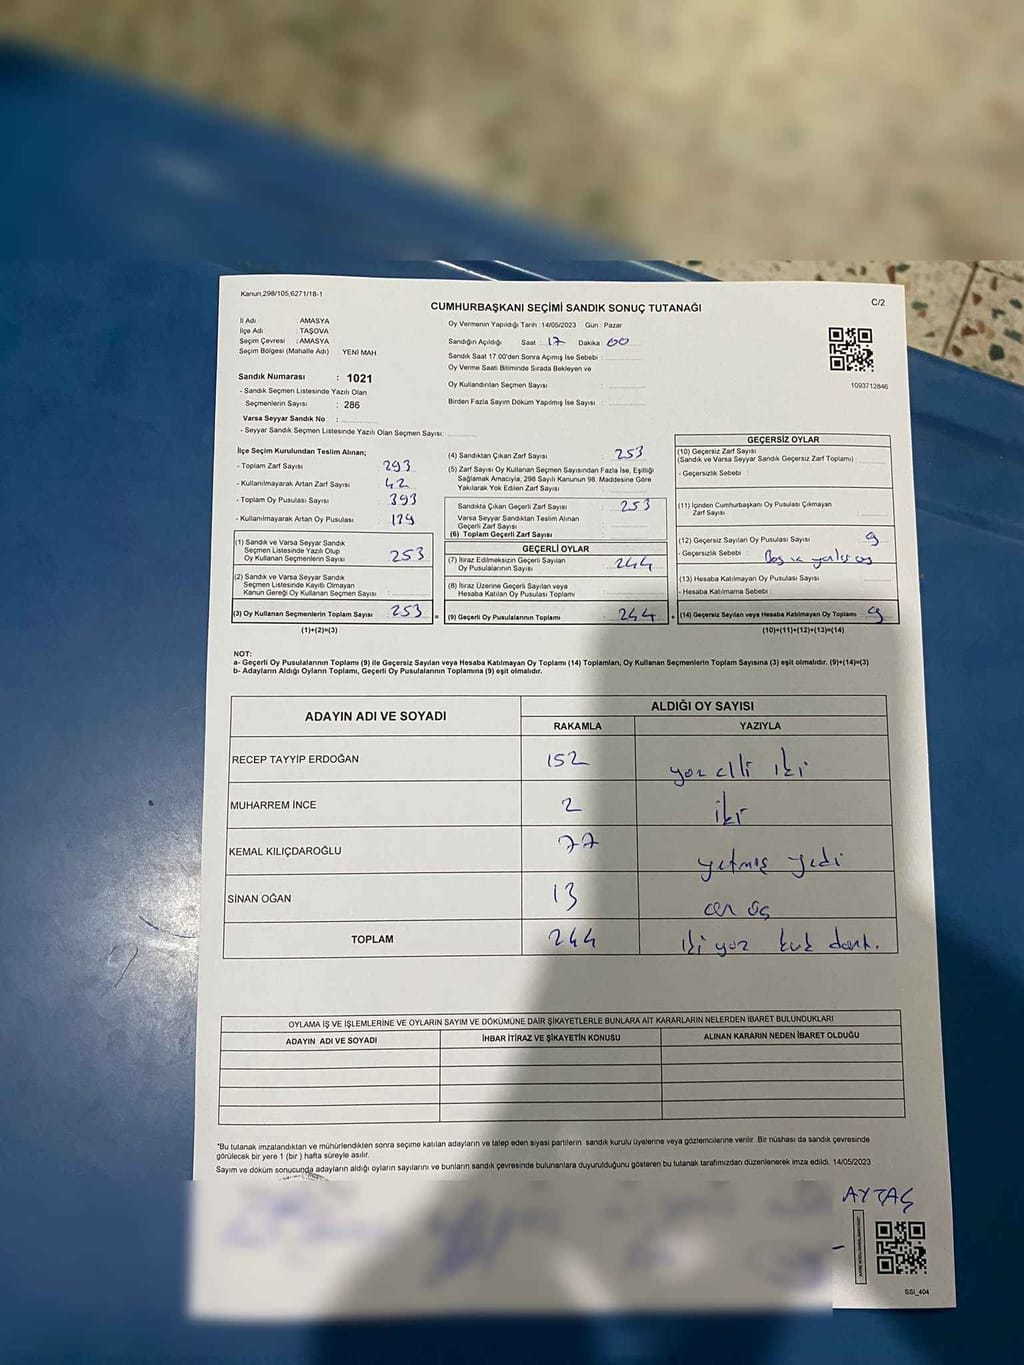 Kanun,298/105,6271/18-1
C/2
CUMHURBAŞKANI SEÇİMİ SANDIK SONUÇ TUTANAĞI
İl Adı : AMASYA
İlçe Adı : TAŞOVA
Seçim Çevresi : AMASYA
Seçim Bölgesi (Mahalle Adı) : YENİ MAH
Sandık Numarası : 1021
- Sandık Seçmen Listesinde Yazılı Olan
Seçmenlerin Sayısı : 286
Varsa Seyyar Sandık No :
- Seyyar Sandık Seçmen Listesinde Yazılı Olan Seçmen Sayısı:
Oy Vermenin Yapıldığı Tarih :14/05/2023 Gün : Pazar
Sandığın Açıldığı Saat 17 Dakika : 00
Sandık Saat 17.00'den Sonra Açımış İse Sebebi :
Oy Verme Saati Bitiminde Sırada Bekleyen ve
Oy Kullandırılan Seçmen Sayısı :
Birden Fazla Sayım Döküm Yapılmış İse Sayısı :
1093712846
İlçe Seçim Kurulundan Teslim Alınan;
- Toplam Zarf Sayısı : 293
- Kullanılmayarak Artan Zarf Sayısı : 42
- Toplam Oy Pusulası Sayısı : 393
- Kullanılmayarak Artan Oy Pusulası : 129
(1) Sandık ve Varsa Seyyar Sandık
Seçmen Listesinde Yazılı Olup
Oy Kullanan Seçmenlerin Sayısı : 253
(2) Sandık ve Varsa Seyyar Sandık
Seçmen Listesinde Kayıtlı Olmayan
Kanun Gereği Oy Kullanan Seçmen Sayısı :
(3) Oy Kullanan Seçmenlerin Toplam Sayısı : 253
(1)+(2)=(3)
(4) Sandıktan Çıkan Zarf Sayısı : 253
(5) Zarf Sayısı Oy Kullanan Seçmen Sayısından Fazla İse, Eşitliği
Sağlamak Amacıyla, 298 Sayılı Kanunun 98. Maddesine Göre
Yakılarak Yok Edilen Zarf Sayısı :
Sandıkta Çıkan Geçerli Zarf Sayısı : 253
Varsa Seyyar Sandıktan Teslim Alınan
Geçerli Zarf Sayısı :
(6) Toplam Geçerli Zarf Sayısı :
GEÇERLİ OYLAR
(7) İtiraz Edilmeksizin Geçerli Sayılan
Oy Pusulalarının Sayısı : 244
(8) İtiraz Üzerine Geçerli Sayılan veya
Hesaba Katılan Oy Pusulası Toplamı :
(9) Geçerli Oy Pusulalarının Toplamı : 244
GEÇERSİZ OYLAR
(10) Geçersiz Zarf Sayısı
(Sandık ve Varsa Seyyar Sandık Geçersiz Zarf Toplamı) :
- Geçersizlik Sebebi :
(11) İçinden Cumhurbaşkanı Oy Pusulası Çıkmayan
Zarf Sayısı :
(12) Geçersiz Sayılan Oy Pusulası Sayısı : 9
- Geçersizlik Sebebi : Boş ve yanlış oy
(13) Hesaba Katılmayan Oy Pusulası Sayısı :
- Hesaba Katılmama Sebebi :
(14) Geçersiz Sayılan veya Hesaba Katılmayan Oy Toplamı : 9
(10)+(11)+(12)+(13)=(14)
NOT:
a- Geçerli Oy Pusulalarının Toplamı (9) ile Geçersiz Sayılan veya Hesaba Katılmayan Oy Toplamı (14) Toplamları, Oy Kullanan Seçmenlerin Toplam Sayısına (3) eşit olmalıdır. (9)+(14)=(3)
b- Adayların Aldığı Oyların Toplamı, Geçerli Oy Pusulalarının Toplamına (9) eşit olmalıdır.
ADAYIN ADI VE SOYADI
ALDIĞI OY SAYISI
RAKAMLA YAZIYLA
RECEP TAYYİP ERDOĞAN 152 yüz elli iki
MUHARREM İNCE 2 iki
KEMAL KILIÇDAROĞLU 77 yetmiş yedi
SİNAN OĞAN 13 on üç
TOPLAM 244 iki yüz kırk dört.
OYLAMA İŞ VE İŞLEMLERİNE VE OYLARIN SAYIM VE DÖKÜMÜNE DAİR ŞİKAYETLERLE BUNLARA AİT KARARLARIN NELERDEN İBARET BULUNDUKLARI
ADAYIN ADI VE SOYADI İHBAR İTİRAZ VE ŞİKAYETİN KONUSU ALINAN KARARIN NEDEN İBARET OLDUĞU
*Bu tutanak imzalandıktan ve mühürlendikten sonra seçime katılan adayların ve talep eden siyasi partilerin sandık kurulu üyelerine veya gözlemcilerine verilir. Bir nüshası da sandık çevresinde
görülecek bir yere 1 (bir ) hafta süreyle asılır.
Sayım ve döküm sonucunda adayların aldığı oyların sayılarını ve bunların sandık çevresinde bulunanlara duyurulduğunu gösteren bu tutanak tarafımızdan düzenlenerek imza edildi. 14/05/2023
AYTAŞ
SSI_404